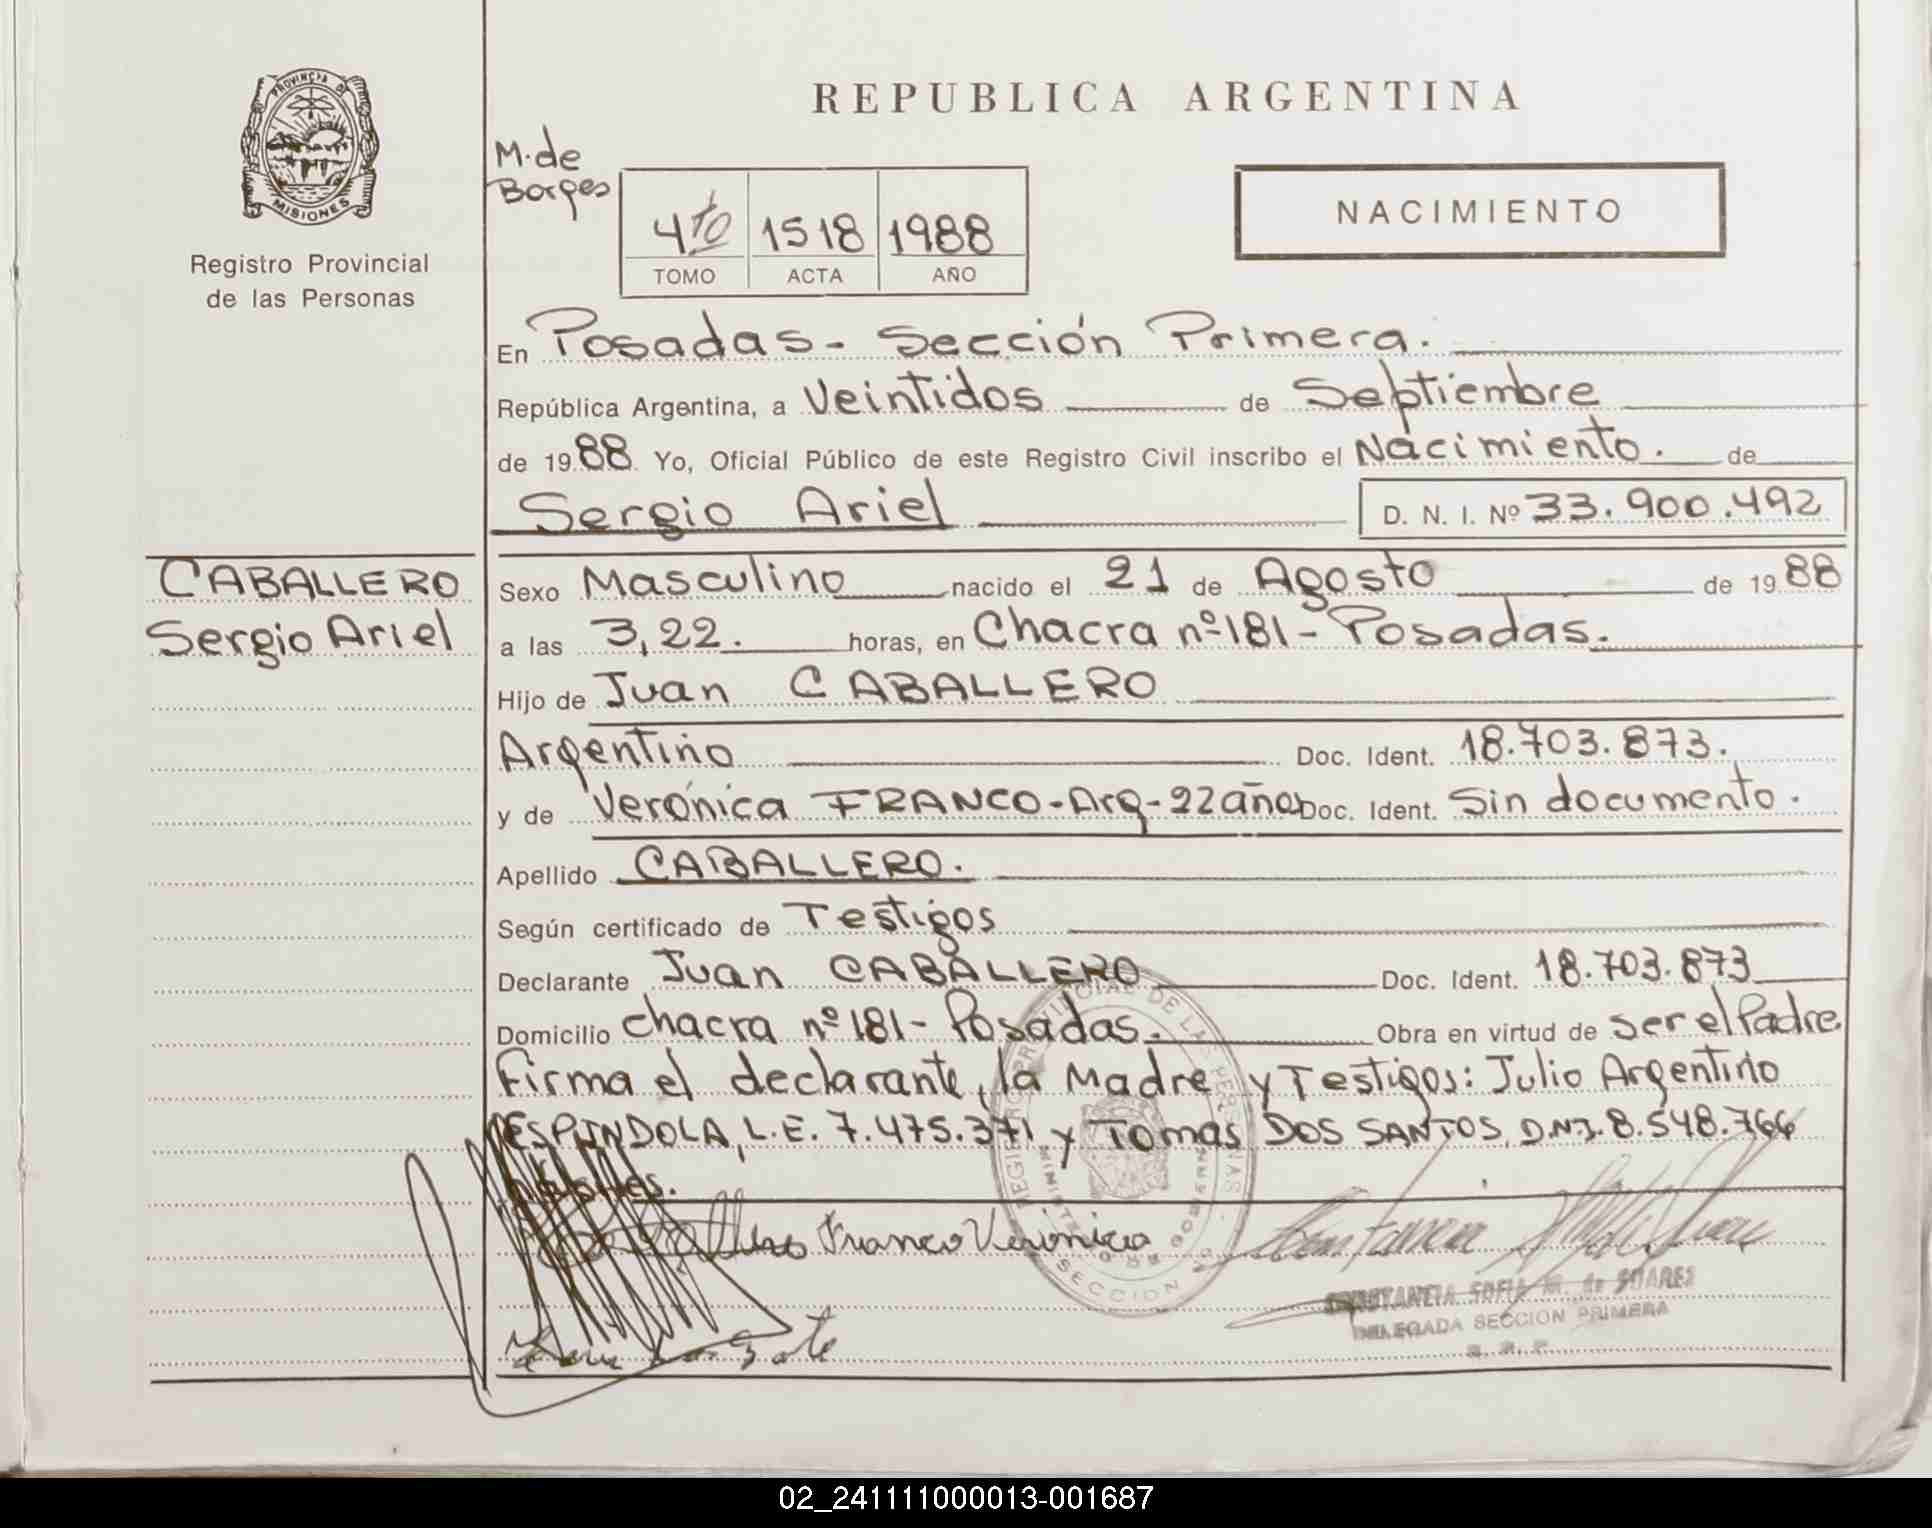 PROVINCIA DE
MISIONES
Registro Provincial
de las Personas
REPUBLICA ARGENTINA
M. de
Borges
4to 1518 1988
TOMO ACTA AÑO
NACIMIENTO
En Posadas - Sección Primera.
República Argentina, a Veintidos de Septiembre
de 1988 Yo, Oficial Público de este Registro Civil inscribo el Nacimiento. de
Sergio Ariel D. N. I. Nº 33.900.492
CABALLERO
Sergio Ariel
Sexo Masculino nacido el 21 de Agosto de 1988
a las 3,22. horas, en Chacra nº 181 - Posadas.
Hijo de Juan CABALLERO
Argentino Doc. Ident. 18.703.873.
y de Verónica FRANCO - Arg - 22 años Doc. Ident. Sin documento.
Apellido CABALLERO.
Según certificado de Testigos
Declarante Juan CABALLERO Doc. Ident. 18.703.873
Domicilio chacra nº 181 - Posadas. Obra en virtud de ser el Padre
Firma el declarante, la Madre y Testigos: Julio Argentino
ESPINDOLA, L.E. 7.475.371 y Tomas DOS SANTOS, D.N.I. 8.548.766
hábiles.
Franco Verónica
CONSTANCIA SOFIA M. de SUARES
DELEGADA SECCION PRIMERA
02_241111000013-001687